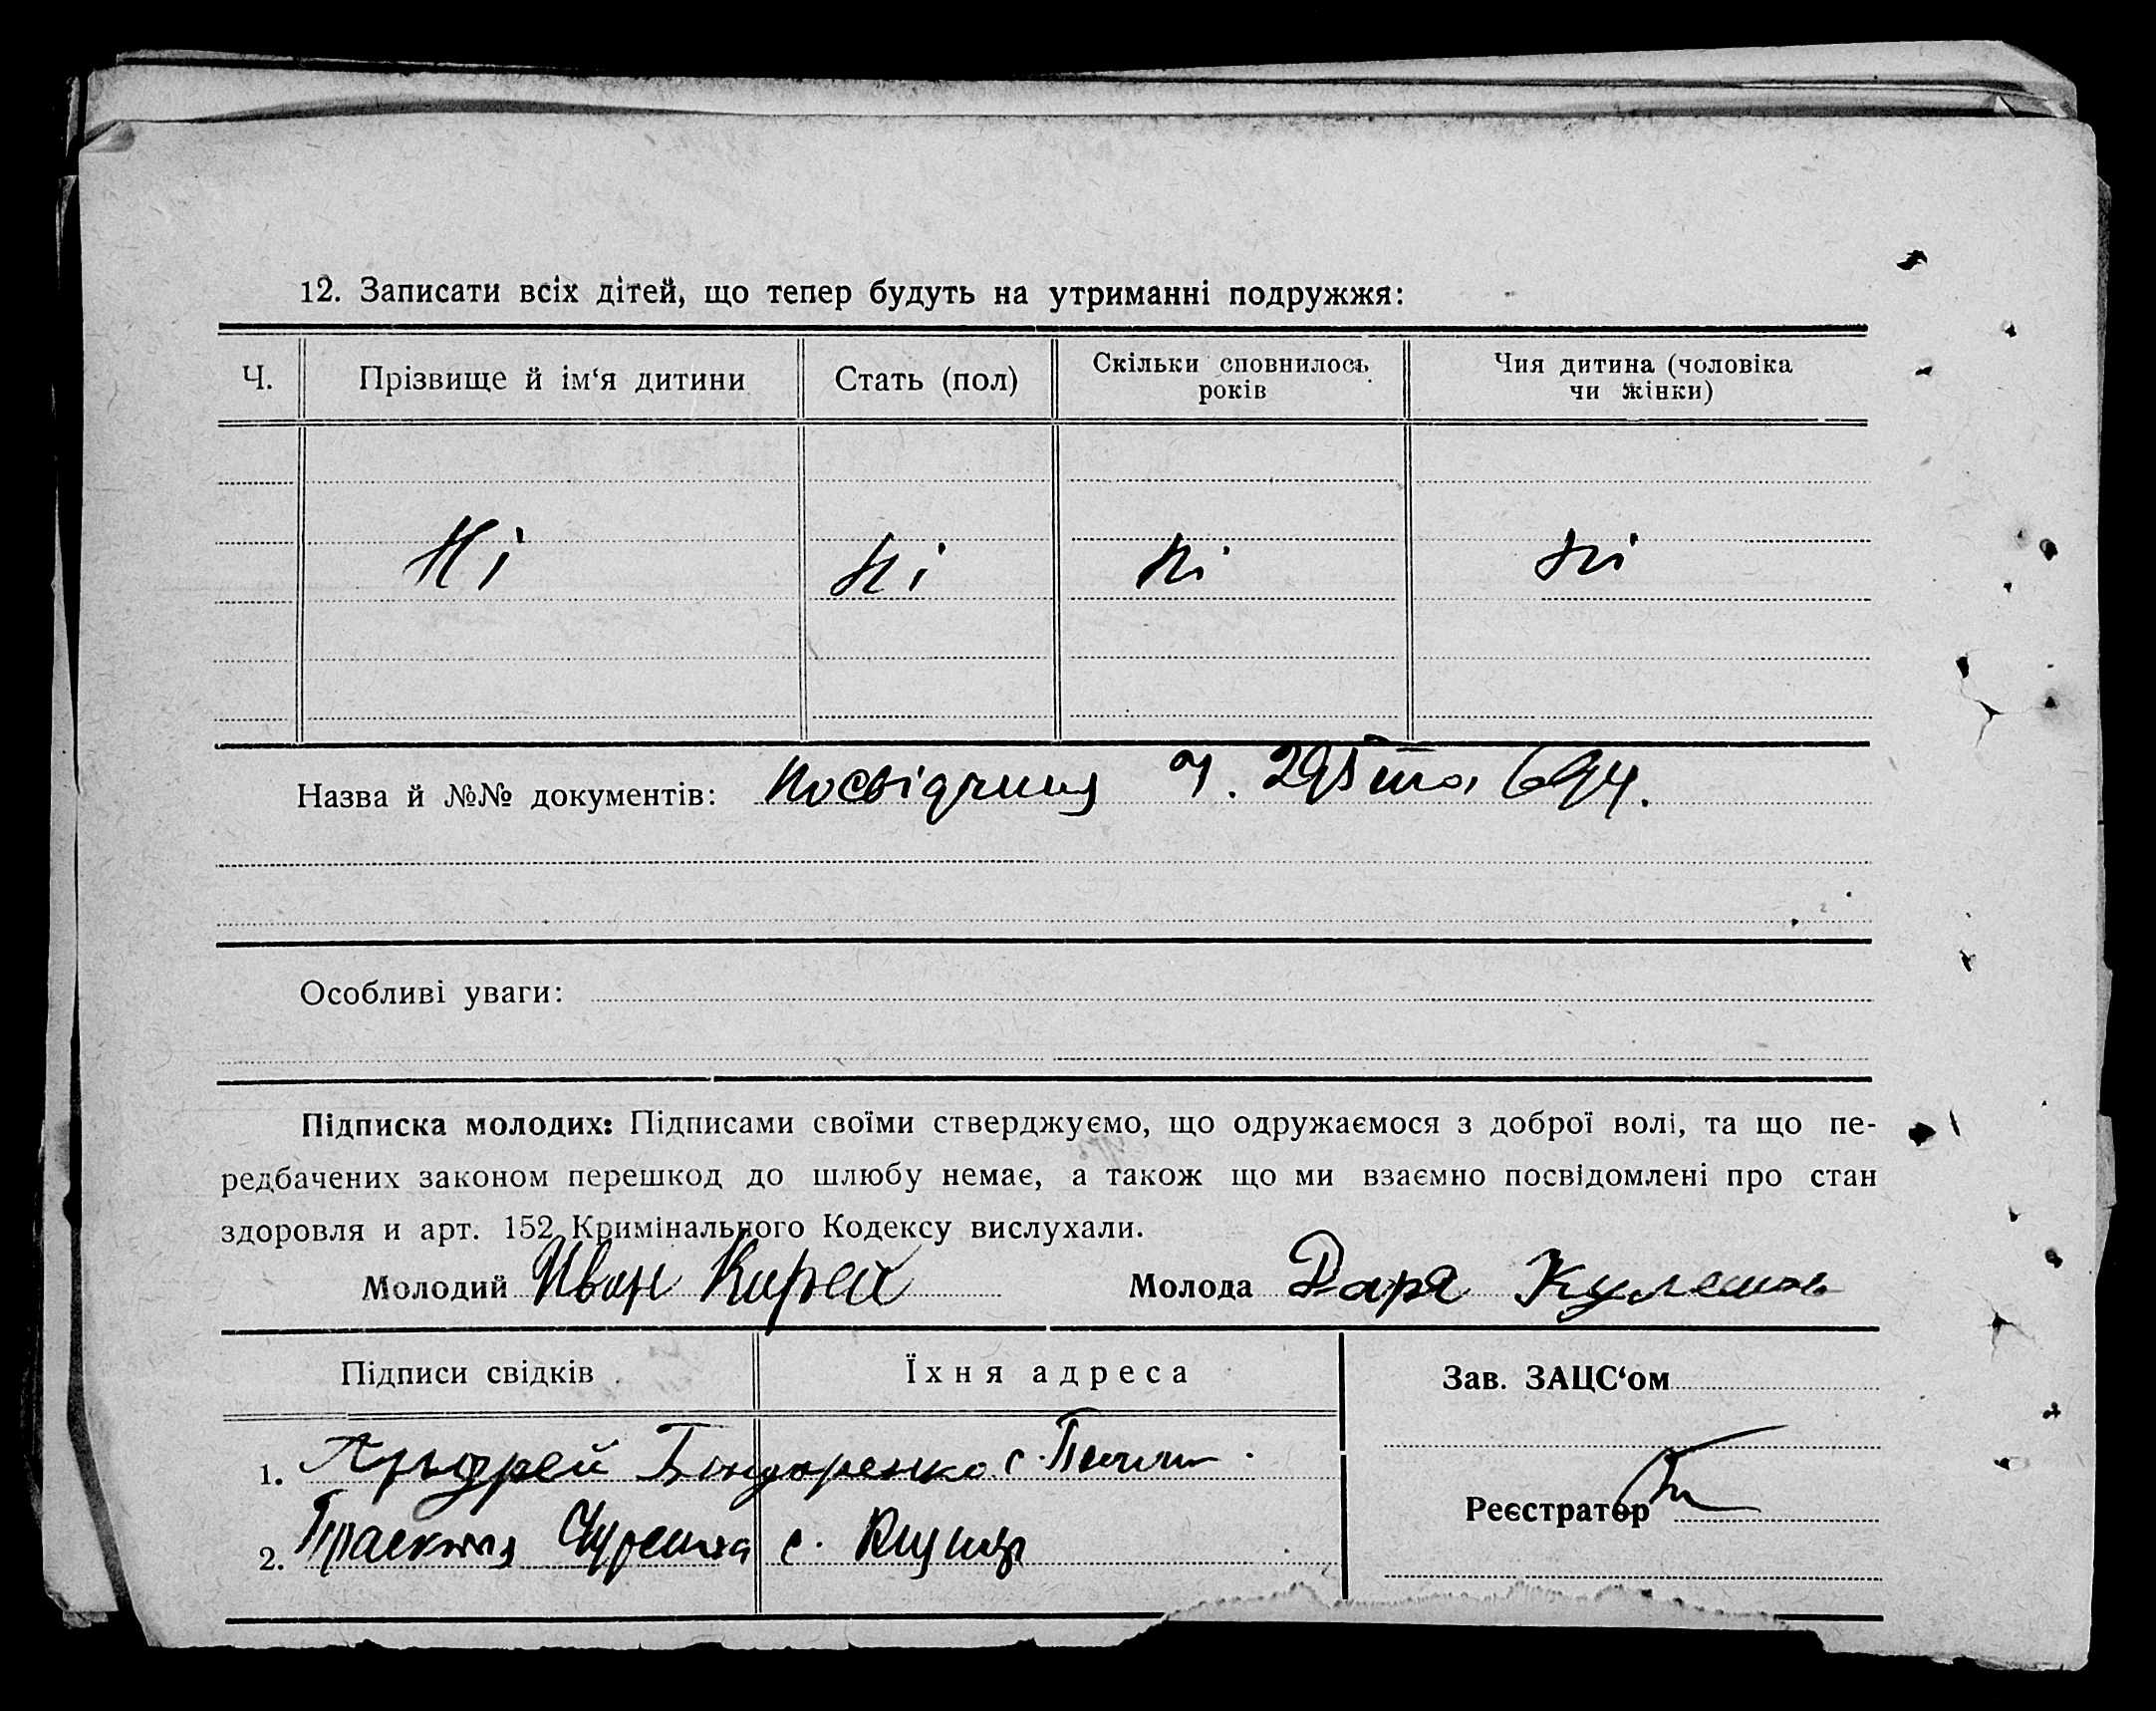 12. Записати всіх дітей, що тепер будуть на утриманні подружжя:
Ч. Прізвище й ім‘я дитини Стать (пол) Скільки сповнилось років Чия дитина (чоловіка чи жінки)
Ні ні ні ні
Назва й №№ документів: Посвідчиня ч. 295 та 694.
Особливі уваги:
Підписка молодих: Підписами своїми стверджуємо, що одружаємося з доброї волі, та що пе-
редбачених законом перешкод до шлюбу немає, а також що ми взаємно посвідомлені про стан
здоровля и арт. 152 Кримінального Кодексу вислухали.
Молодий Иван Кирей Молода Даря
Підписи свідків Їхня адреса Зав. ЗАЦС‘ом
1. Андрей Бондаренко с.
Реєстратор
2. с.